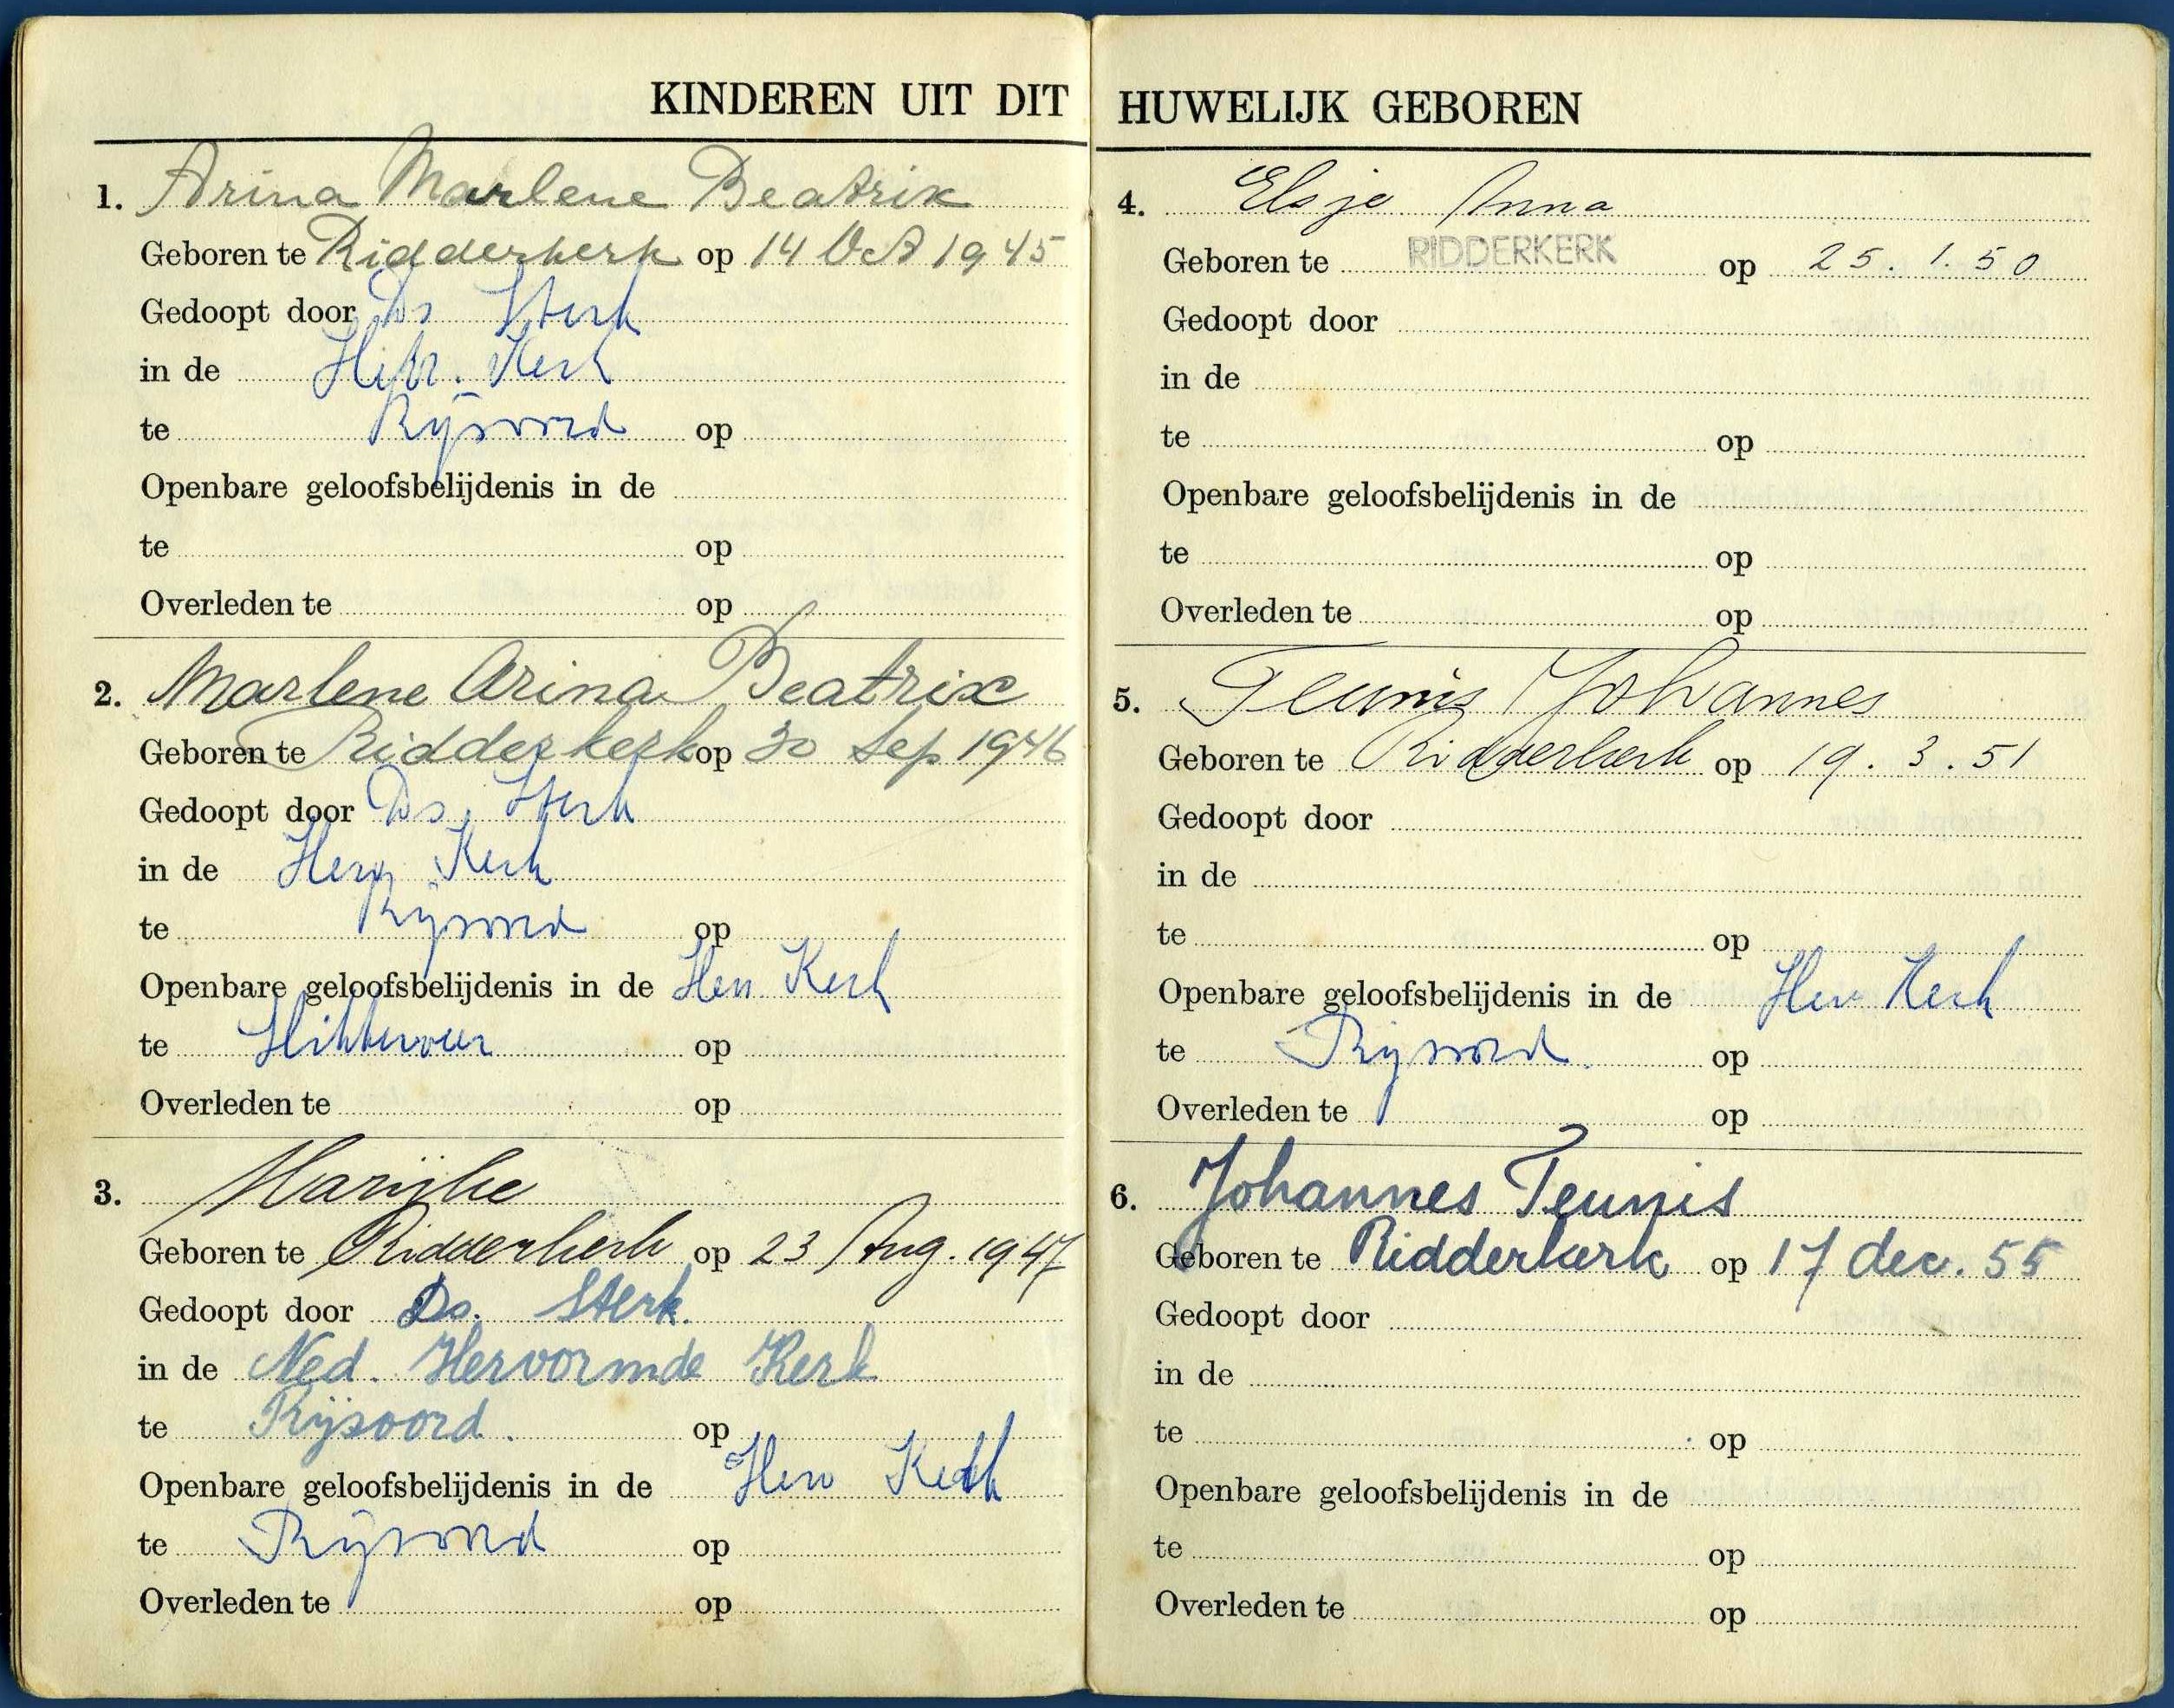 KINDEREN UIT DIT HUWELIJK GEBOREN
1. Arina Marlene Beatrix
Geboren te Ridderkerk op 14 Oct 1945
Gedoopt door Ds Sterk
in de Kerk
te Rijsoord op
Openbare geloofsbelijdenis in de
te op
Overleden te op
2. Marlene Arina Beatrix
Geboren te Ridderkerk op 30 Sep 1946
Gedoopt door Ds. Sterk
in de Herv Kerk
te Rijsoord op
Openbare geloofsbelijdenis in de Herv Kerk
te Slikkerveer op
Overleden te op
3. Marijke
Geboren te Ridderkerk op 23 Aug. 1947
Gedoopt door Ds. Sterk.
in de Ned. Hervormde Kerk
te Rijsoord. op
Openbare geloofsbelijdenis in de Herv Kerk
te Rijsoord op
Overleden te op
4. Elsje Anna
Geboren te RIDDERKERK op 25. 1. 50
Gedoopt door
in de
te op
Openbare geloofsbelijdenis in de
te op
Overleden te op
5. Teunis Johannes
Geboren te Ridderkerk op 19. 3. 51
Gedoopt door
in de
te op
Openbare geloofsbelijdenis in de Herv Kerk
te Rijsoord. op
Overleden te op
6. Johannes Teunis
Geboren te Ridderkerk op 17 dec. 55
Gedoopt door
in de
te op
Openbare geloofsbelijdenis in de
te op
Overleden te op